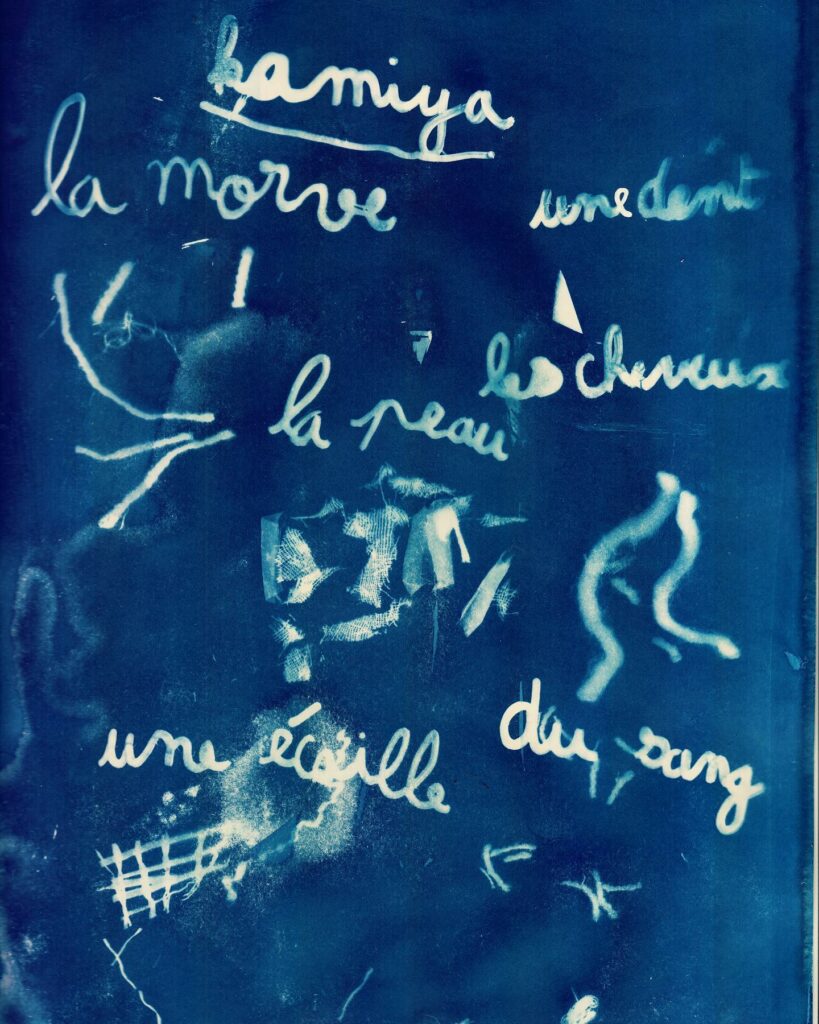 kamiya
la morve
une dent
les cheveux
la peau
une écaille
du sang